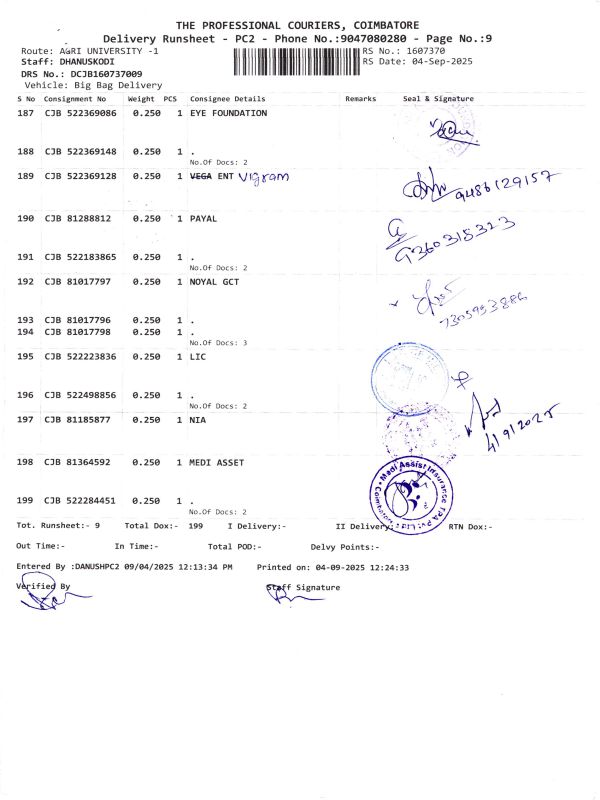 THE PROFESSIONAL COURIERS, COIMBATORE
Delivery Runsheet - PC2 - Phone No.:9047080280 - Page No.:9
Route: AGRI UNIVERSITY -1 RS No.: 1607370
Staff: DHANUSKODI RS Date: 04-Sep-2025
DRS No.: DCJB160737009
Vehicle: Big Bag Delivery
S No Consignment No Weight PCS Consignee Details Remarks Seal & Signature
187 CJB 522369086 0.250 1 EYE FOUNDATION
188 CJB 522369148 0.250 1 .
No.Of Docs: 2
189 CJB 522369128 0.250 1 VEGA ENT Vigram
9486129157
190 CJB 81288812 0.250 1 PAYAL
9360315323
191 CJB 522183865 0.250 1 .
No.Of Docs: 2
192 CJB 81017797 0.250 1 NOYAL GCT
7305953886
193 CJB 81017796 0.250 1 .
194 CJB 81017798 0.250 1 .
No.Of Docs: 3
195 CJB 522223836 0.250 1 LIC
196 CJB 522498856 0.250 1 .
No.Of Docs: 2
197 CJB 81185877 0.250 1 NIA
4/9/2025
198 CJB 81364592 0.250 1 MEDI ASSET
Medi Assist Insurance TPA Pvt. Ltd.
199 CJB 522284451 0.250 1 .
No.Of Docs: 2
Tot. Runsheet:- 9 Total Dox:- 199 I Delivery:- II Delivery:- RTN Dox:-
Out Time:- In Time:- Total POD:- Delvy Points:-
Entered By :DANUSHPC2 09/04/2025 12:13:34 PM Printed on: 04-09-2025 12:24:33
Verified By Staff Signature